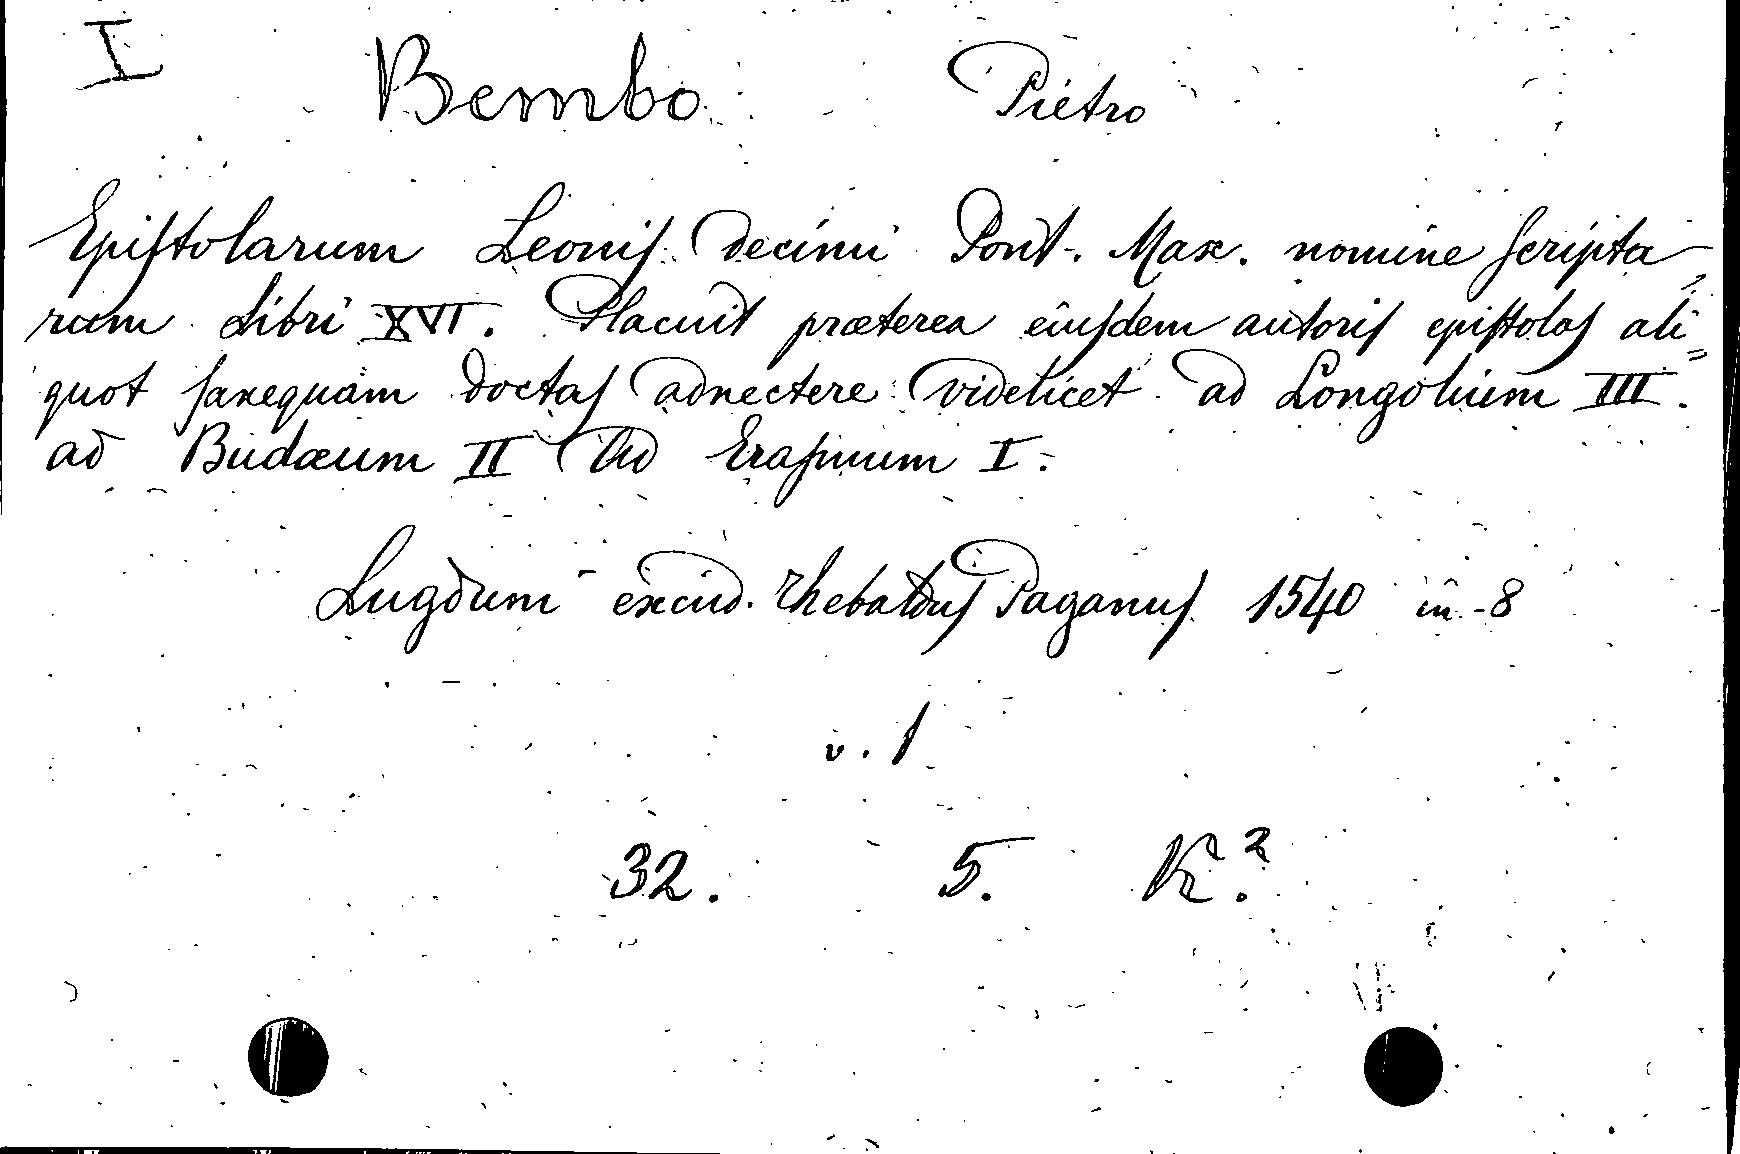 I Bembo Pietro
Epiſtolarum Leoniſ decimi Pont. Max. nomine ſcripta=
rum Libri XVI. Placuit præterea eiuſdem autoriſ epiſtolaſ ali=
quot ſanequam doctaſ adnectere videlicet ad Longolium III.
ad Budæum II Ad Eraſmum I.
Lugduni excud. Thebalduſ Paganuſ 1540 in-8
v. 1
32. 5. K.²